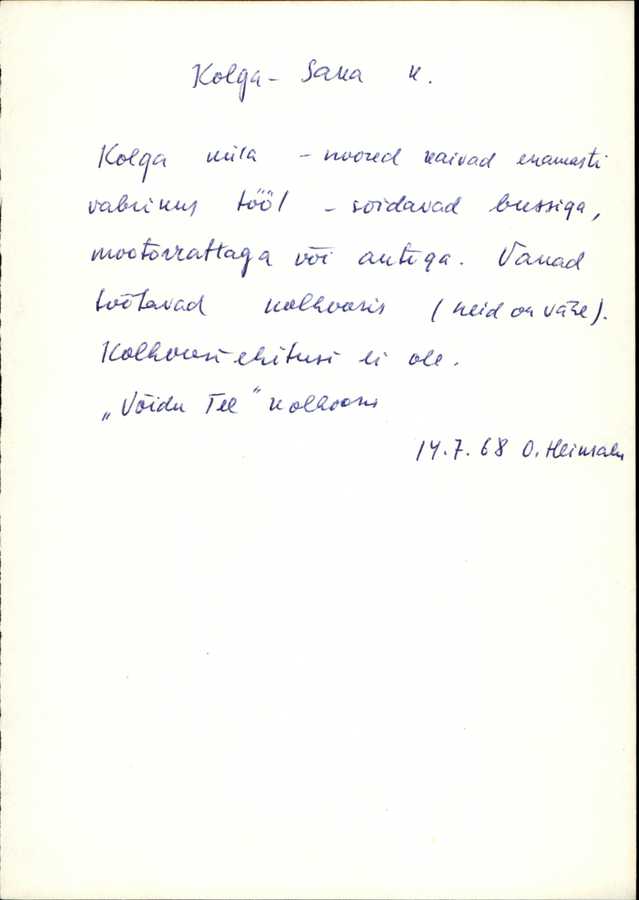 Kolga-Saka k.
Kolga küla - noored käivad enamasti
vabrikus tööl - sõidavad bussiga,
mootorrattaga või autoga. Vanad
töötavad kolhoosis (neid on vähe).
Kolhoosi ehitusi ei ole.
„Võidu Tee" kolhoos
14.7.68 O. Heinsalu